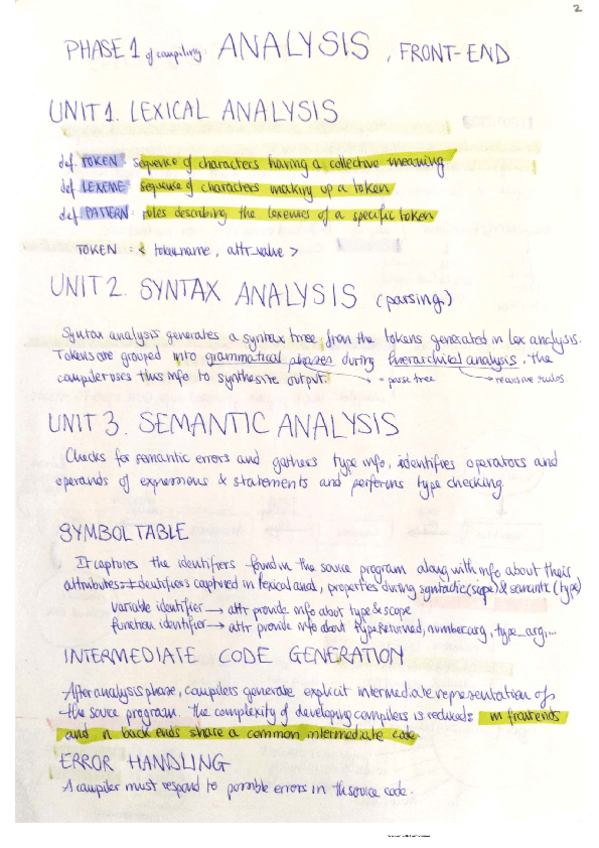 2
PHASE 1 of compiling: ANALYSIS, FRONT-END
UNIT 1. LEXICAL ANALYSIS
def. TOKEN: sequence of characters having a collective meaning
def. LEXEME: sequence of characters making up a token
def. PATTERN: rules describing the lexemes of a specific token
TOKEN : < token_name, attr_value >
UNIT 2. SYNTAX ANALYSIS (parsing)
Syntax analysis generates a syntax tree from the tokens generated in lex analysis.
Tokens are grouped into grammatical phrases during hierarchical analysis. The
compiler uses this info to synthesize output. = parse tree recursive rules
UNIT 3. SEMANTIC ANALYSIS
Checks for semantic errors and gathers type info, identifies operators and
operands of expressions & statements and performs type checking
SYMBOL TABLE
It captures the identifiers found in the source program along with info about their
attributes. Identifiers captured in lexical anal, properties during syntactic (scope) & semantic (type)
variable identifier → attr provide info about type & scope
function identifier → attr provide info about type returned, number arg, type_arg,...
INTERMEDIATE CODE GENERATION
After analysis phase, compilers generate explicit intermediate representation of
the source program. The complexity of developing compilers is reduced: m frontends
and n back ends share a common intermediate code
ERROR HANDLING
A compiler must respond to possible errors in the source code.